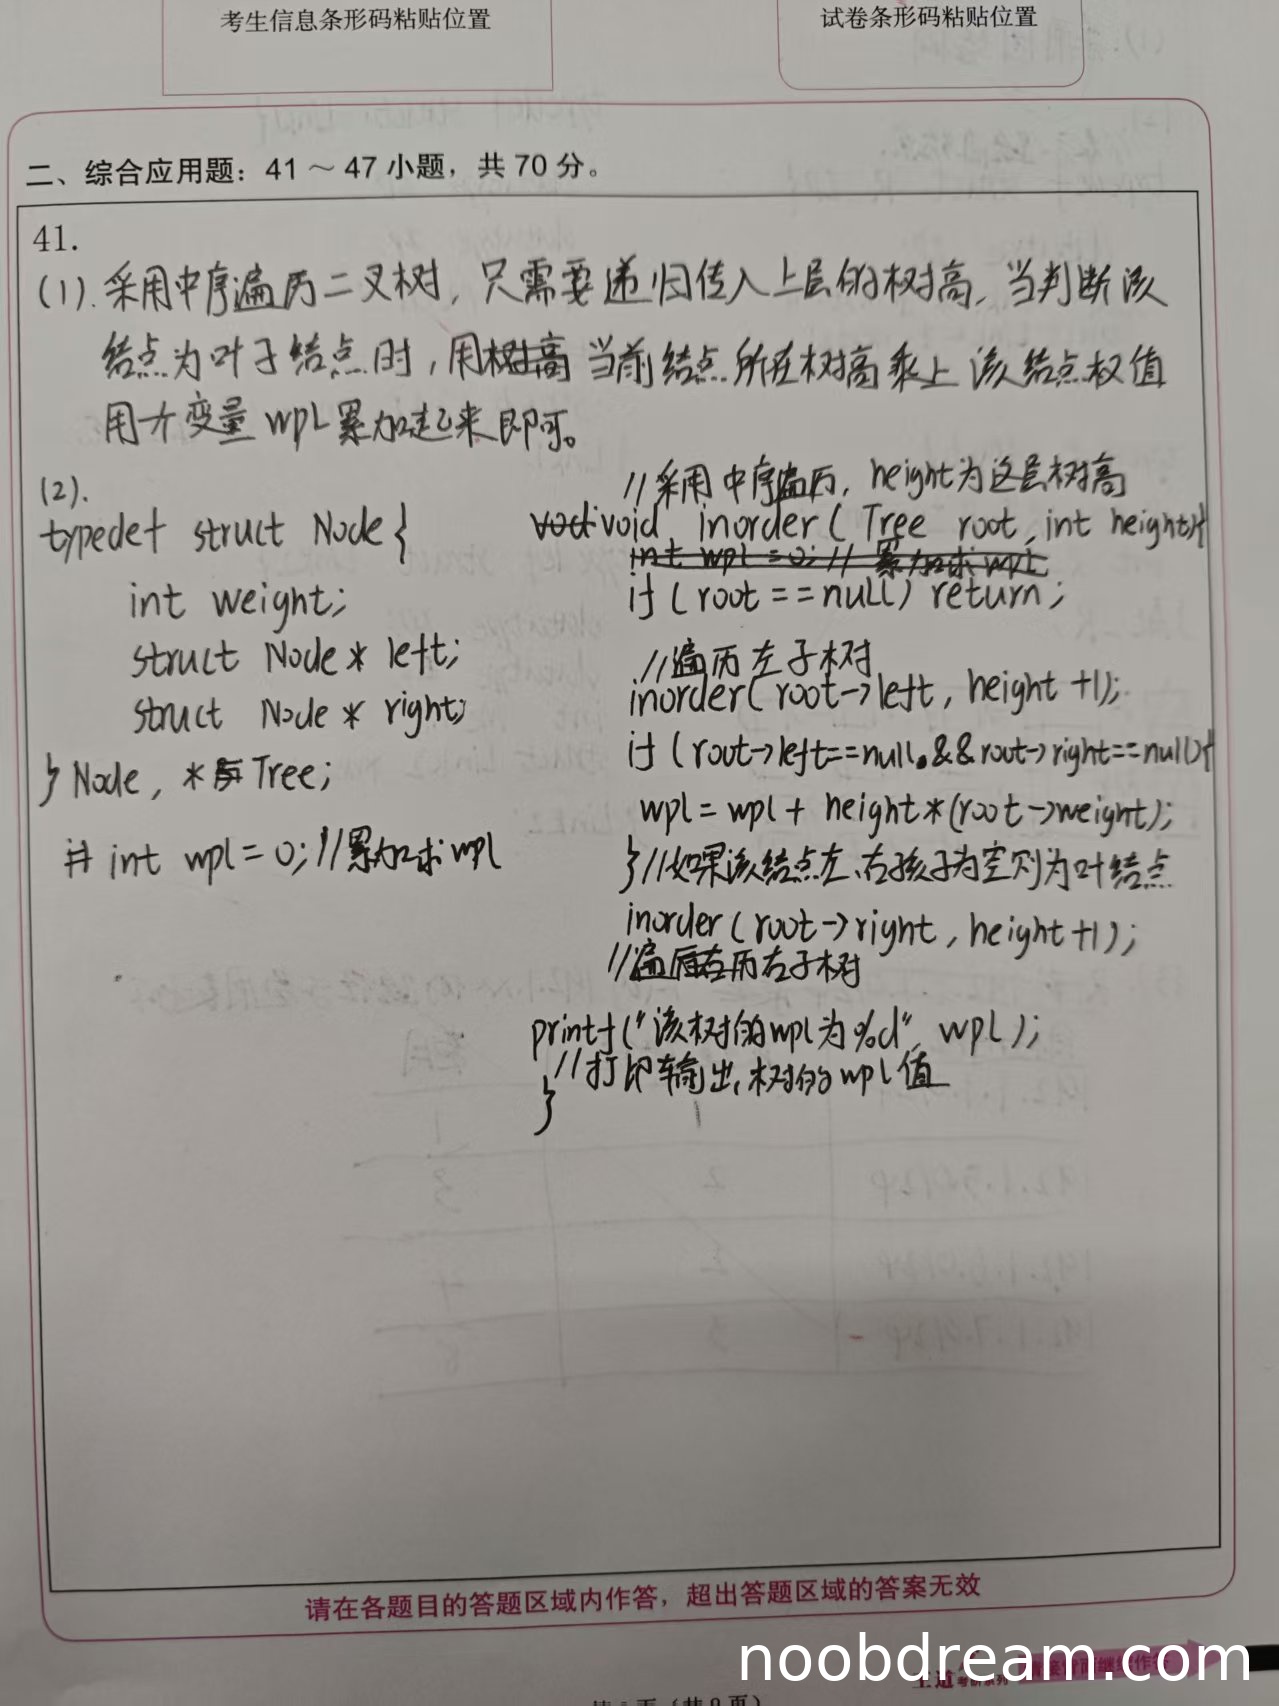 考生信息条形码粘贴位置
试卷条形码粘贴位置
二、综合应用题：41 ～ 47 小题，共 70 分。
41.
(1). 采用中序遍历二叉树，只需要递归传入上层的树高，当判断该
结点为叶子结点时，用树高 当前结点所在树高乘上该结点权值
用一个变量 wpl 累加起来即可。
(2).
typedef struct Node {
int weight;
struct Node * left;
struct Node * right;
} Node, * Tree;
int wpl = 0; //累加求wpl
//采用中序遍历, height为这层树高
void inorder( Tree root, int height){
int wpl = 0; // 累加求wpl
if (root == null) return;
//遍历左子树
inorder( root->left, height +1);
if (root->left==null && root->right==null){
wpl = wpl + height * (root->weight);
}//如果该结点左、右孩子为空则为叶结点
inorder (root->right, height+1);
//遍历右子树
printf("该树的wpl为%d", wpl);
//打印输出树的wpl值
}
请在各题目的答题区域内作答，超出答题区域的答案无效
noobdream.com